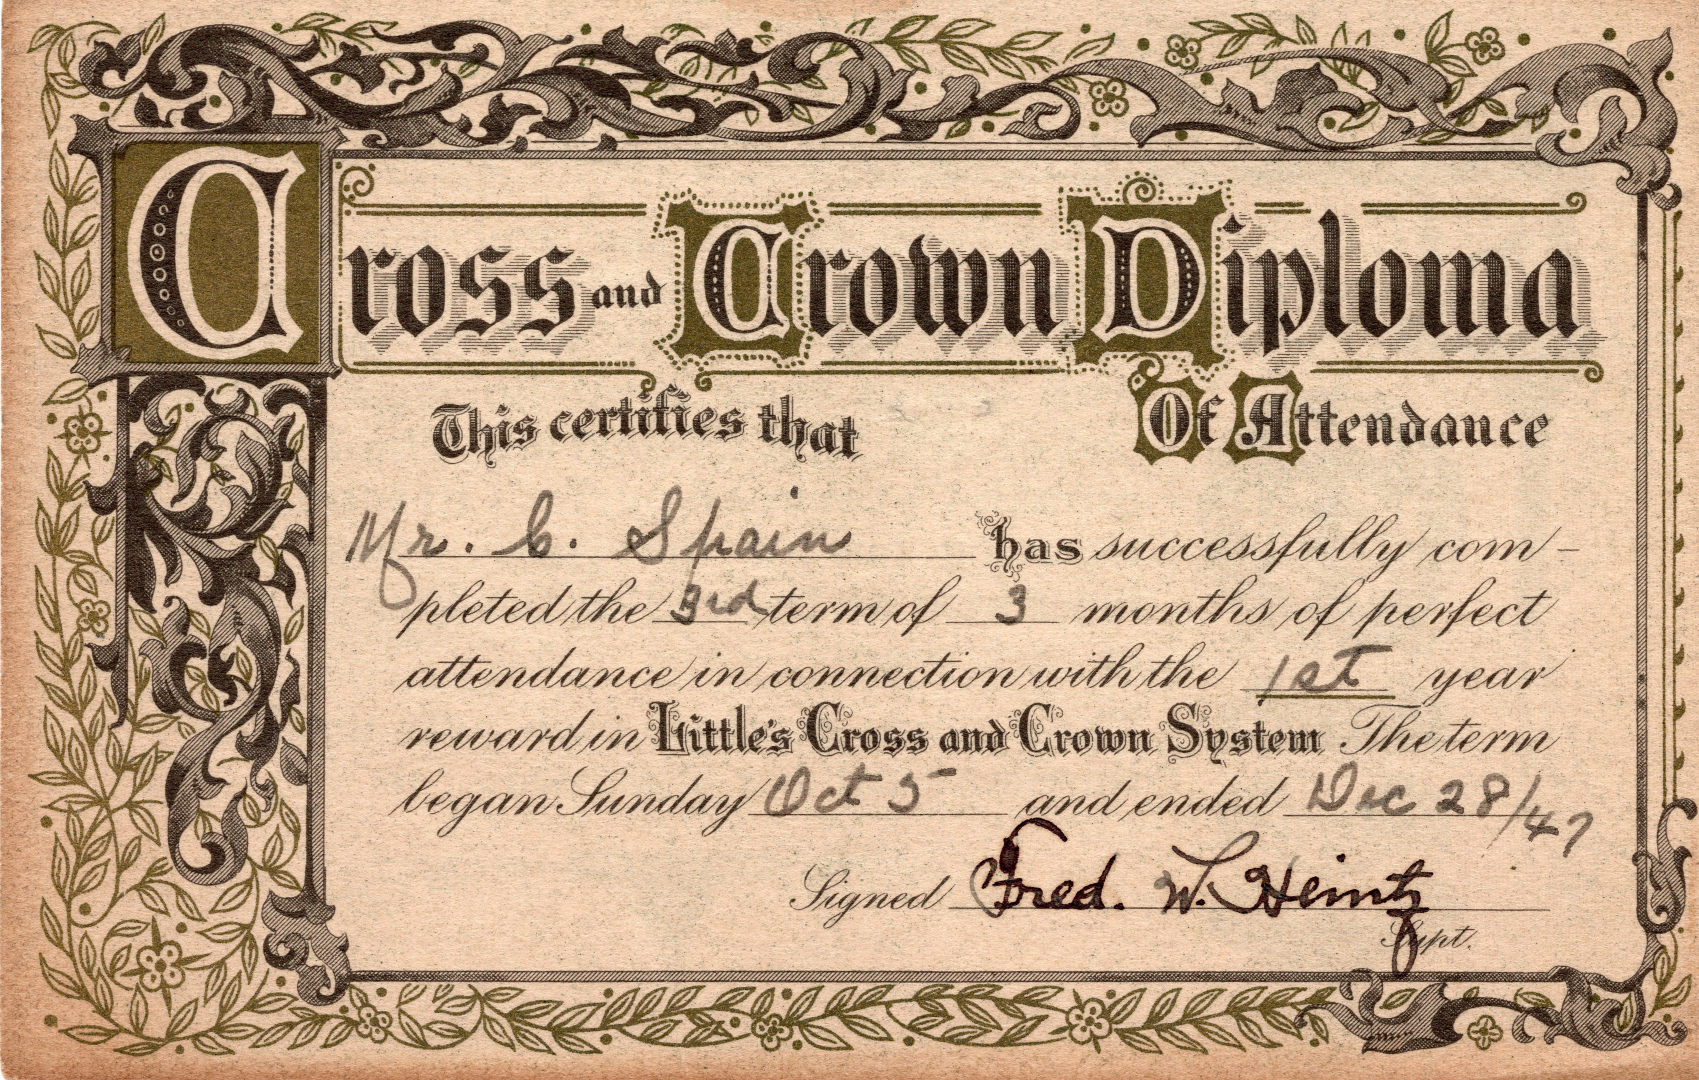 Cross and Crown Diploma
This certifies that Of Attendance
Mr. C. Spain has successfully com-
pleted the 3rd term of 3 months of perfect
attendance in connection with the 1st year
reward in Little's Cross and Crown System The term
began Sunday Oct 5 and ended Dec 28/47
Signed Fred. W. Heintz
Supt.